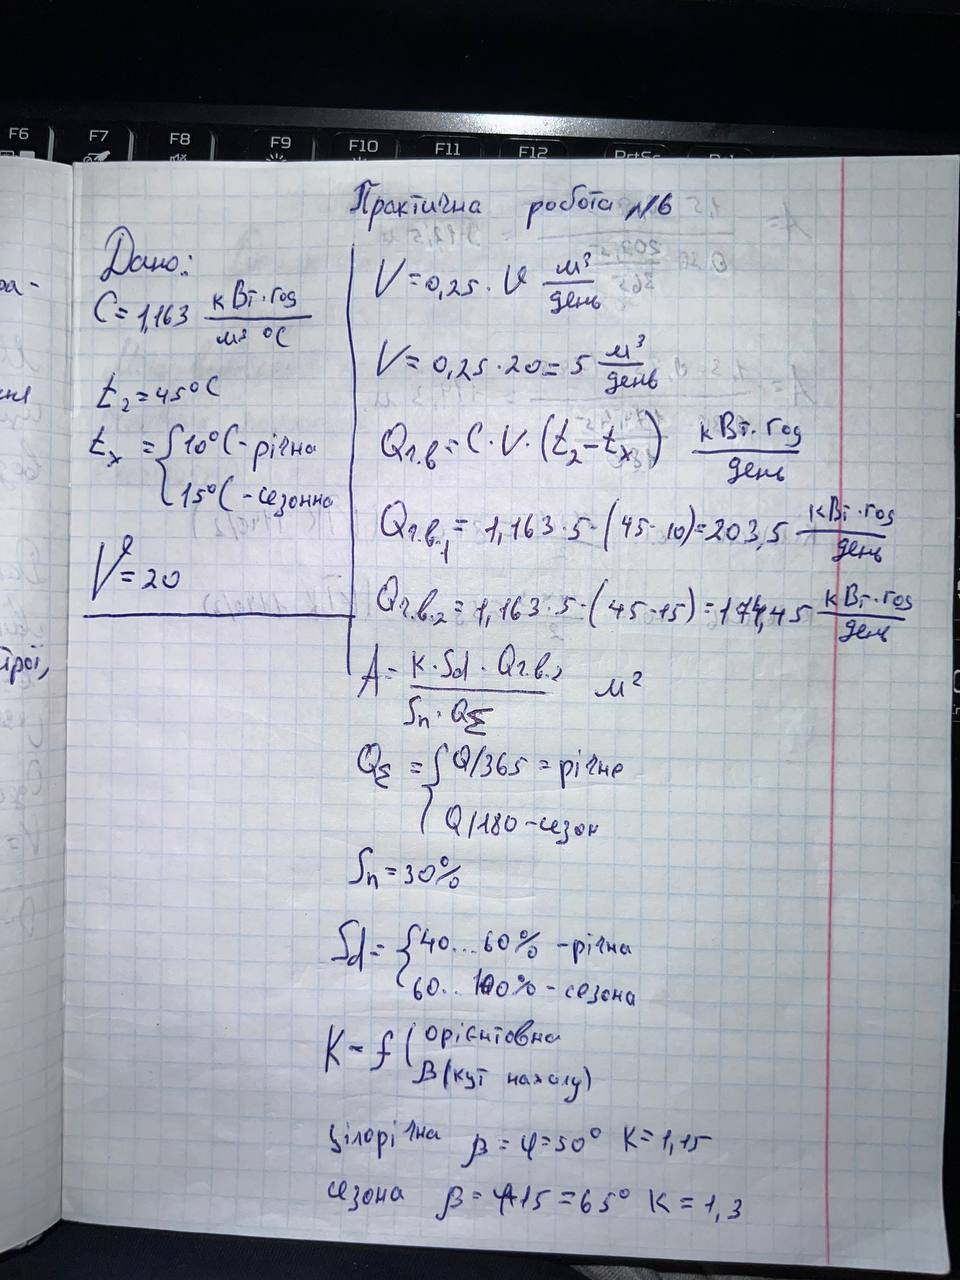 F6 F7 F8 F9 F10 F11 F12 PrtSc
Практична робота №6
Дано:
C=1,163 кВт·год/м³ °C
t₂=45°C
tₓ = { 10°C - річна
15°C - сезонна
V=20
V=0,25·V м³/день
V=0,25·20=5 м³/день
Qг.в=C·V·(t₂-tₓ) кВт·год/день
Qг.в.1=1,163·5·(45-10)=203,5 кВт·год/день
Qг.в.2=1,163·5·(45-15)=174,45 кВт·год/день
A= K·Sd·Qг.в.2 / Sn·QΣ м²
QΣ = { Q/365 = річне
Q/180 - сезон
Sn=30%
Sd= { 40...60% - річна
60...100% - сезона
K=f( орієнтовна
β(кут нахилу)
Цілорічна β=φ=50° K=1,15
сезона β=φ+15=65° K=1,3